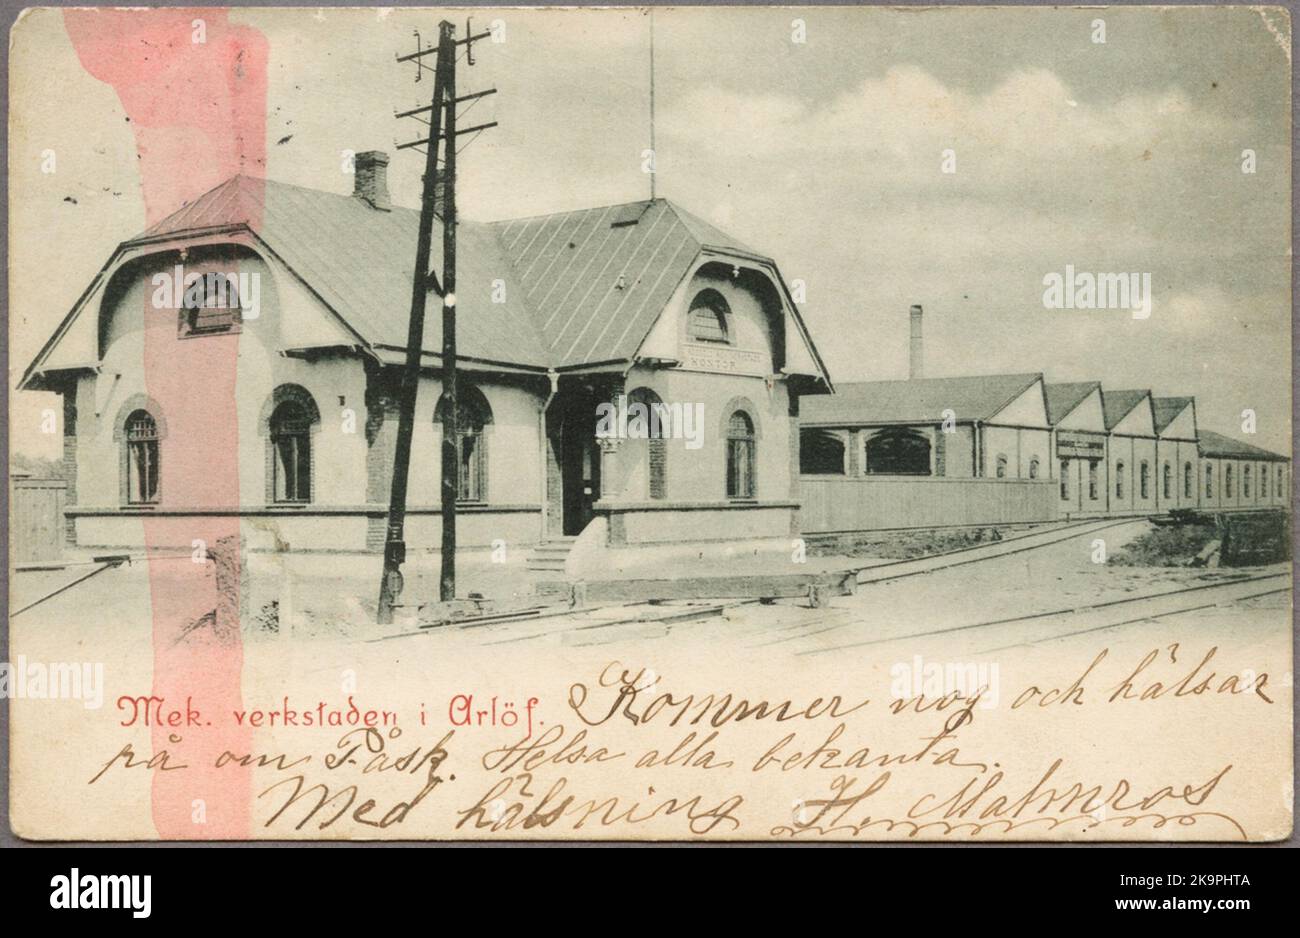 KONTOR
Mek. verkstaden i Arlöf.
Kommer nog och hälsar
på om Påsk. Helsa alla bekanta.
Med hälsning H. Malmros
alamy
alamy
Image ID: 2K9PHTA
www.alamy.com